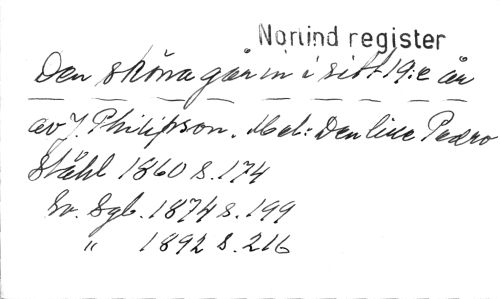 Norlind register
Den sköna går in i sitt 19:e år
av J. Philipson. Mel: Den lille Pedro
Ståhl 1860 s. 174
Sv. Sgb. 1874 s. 199
" 1892 s. 216